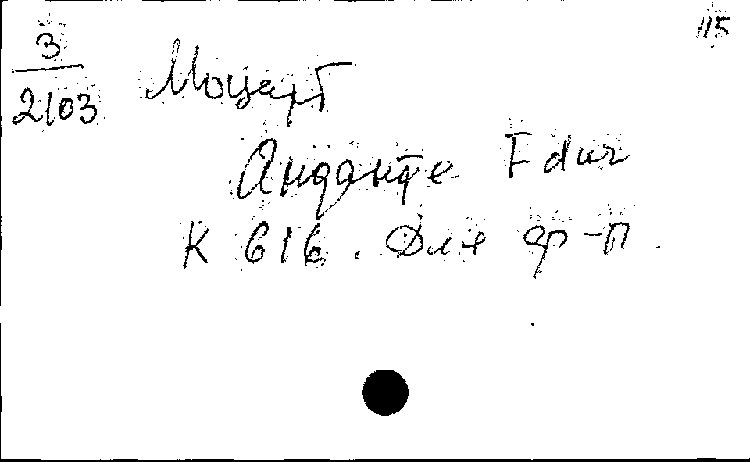 115
3
2103
Моцарт
Анданте F dur
К 616. Для ф-п.